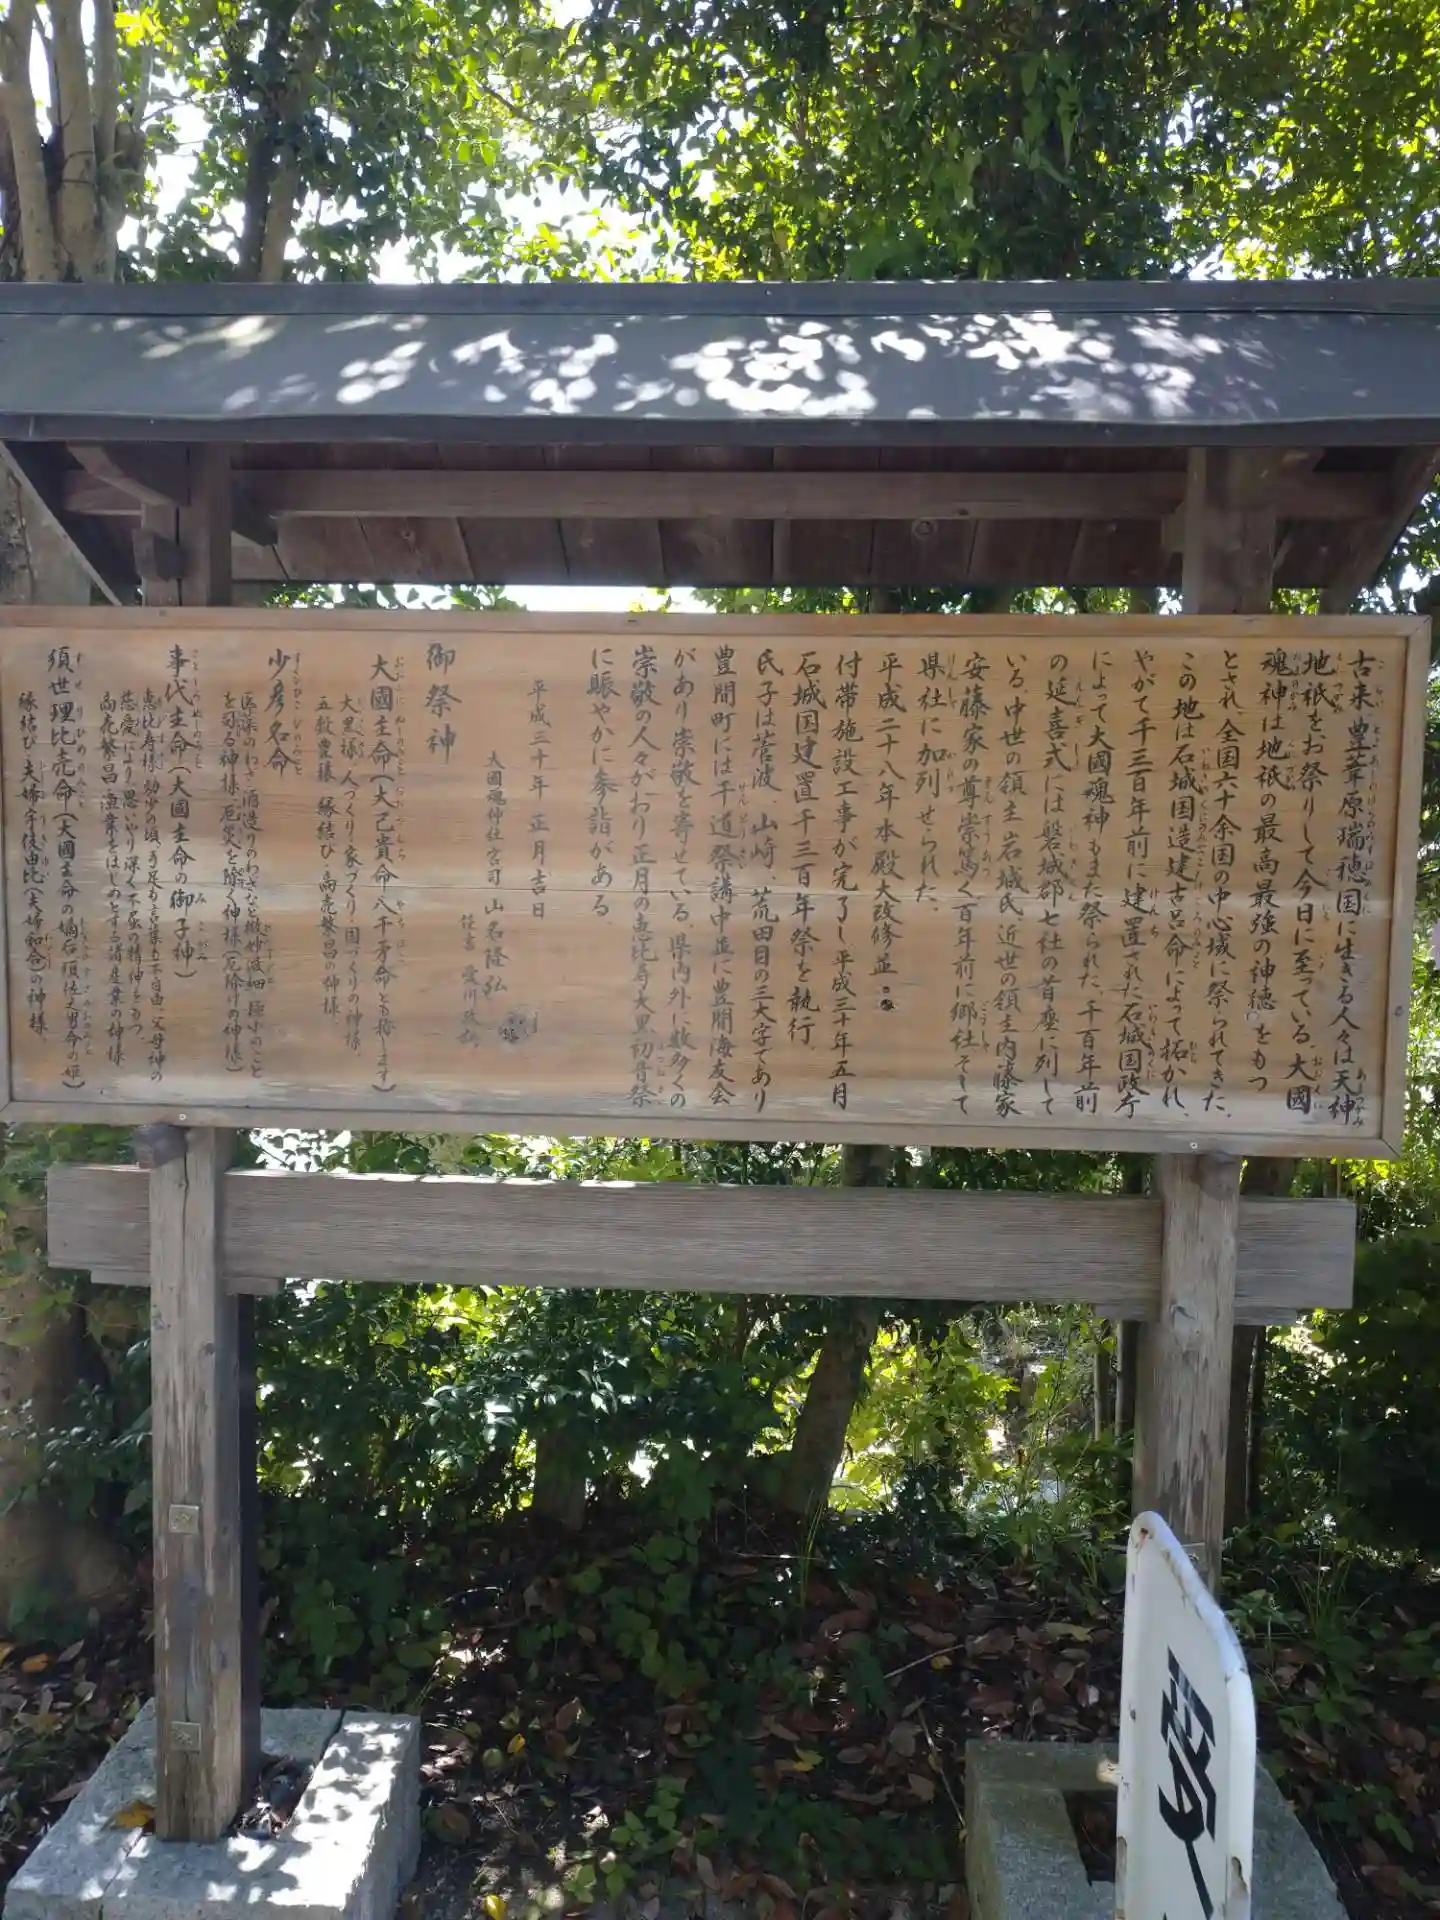 古来豊葦原瑞穂国に生きる人々は天神
地祇をお祭りして今日に至っている。大國
魂神は地祇の最高最強の神徳をもつ
とされ、全国六十余国の中心域に祭られてきた。
この地は石城国造建古呂命によって拓かれ、
やがて千三百年前に建置された石城国政庁
によって大國魂神もまた祭られた。千百年前
の延喜式には磐城郡七社の首座に列して
いる。中世の領主岩城氏、近世の領主内藤家
安藤家の尊崇篤く百年前に郷社そして
県社に加列せられた。
平成二十八年本殿大改修並
付帯施設工事が完了し平成三十年五月
石城国建置千三百年祭を執行。
氏子は菅波、山崎、荒田目の三大字であり
豊間町には千道祭講中並に豊間海友会
があり崇敬を寄せている。県内外に数多くの
崇敬の人々がおり正月の恵比寿大黒初音祭
に賑やかに参詣がある
平成三十年正月吉日
大國魂神社宮司 山名隆弘
御祭神
大國主命(大己貴命八千矛命とも称します)
大黒様 人づくり家づくり・国づくりの神様、
五穀豊穣 縁結び・商売繁昌の神様
少彦名命
医薬のわざ 酒造りのわざなど微妙波細 極小のこと
を司る神様 厄災を除く神様(厄除けの神様)
事代主命(大國主命の御子神)
恵比寿様 幼少の頃、手足も言葉も不自由、父母神の
慈愛により思いやり深く不屈の精神をもつ。
商売繁昌・漁業をはじめとする諸産業の神様
須世理比売命(大國主命の嫡后 須佐之男命の姫)
縁結び・夫婦宇伎由比(夫婦和合)の神様。